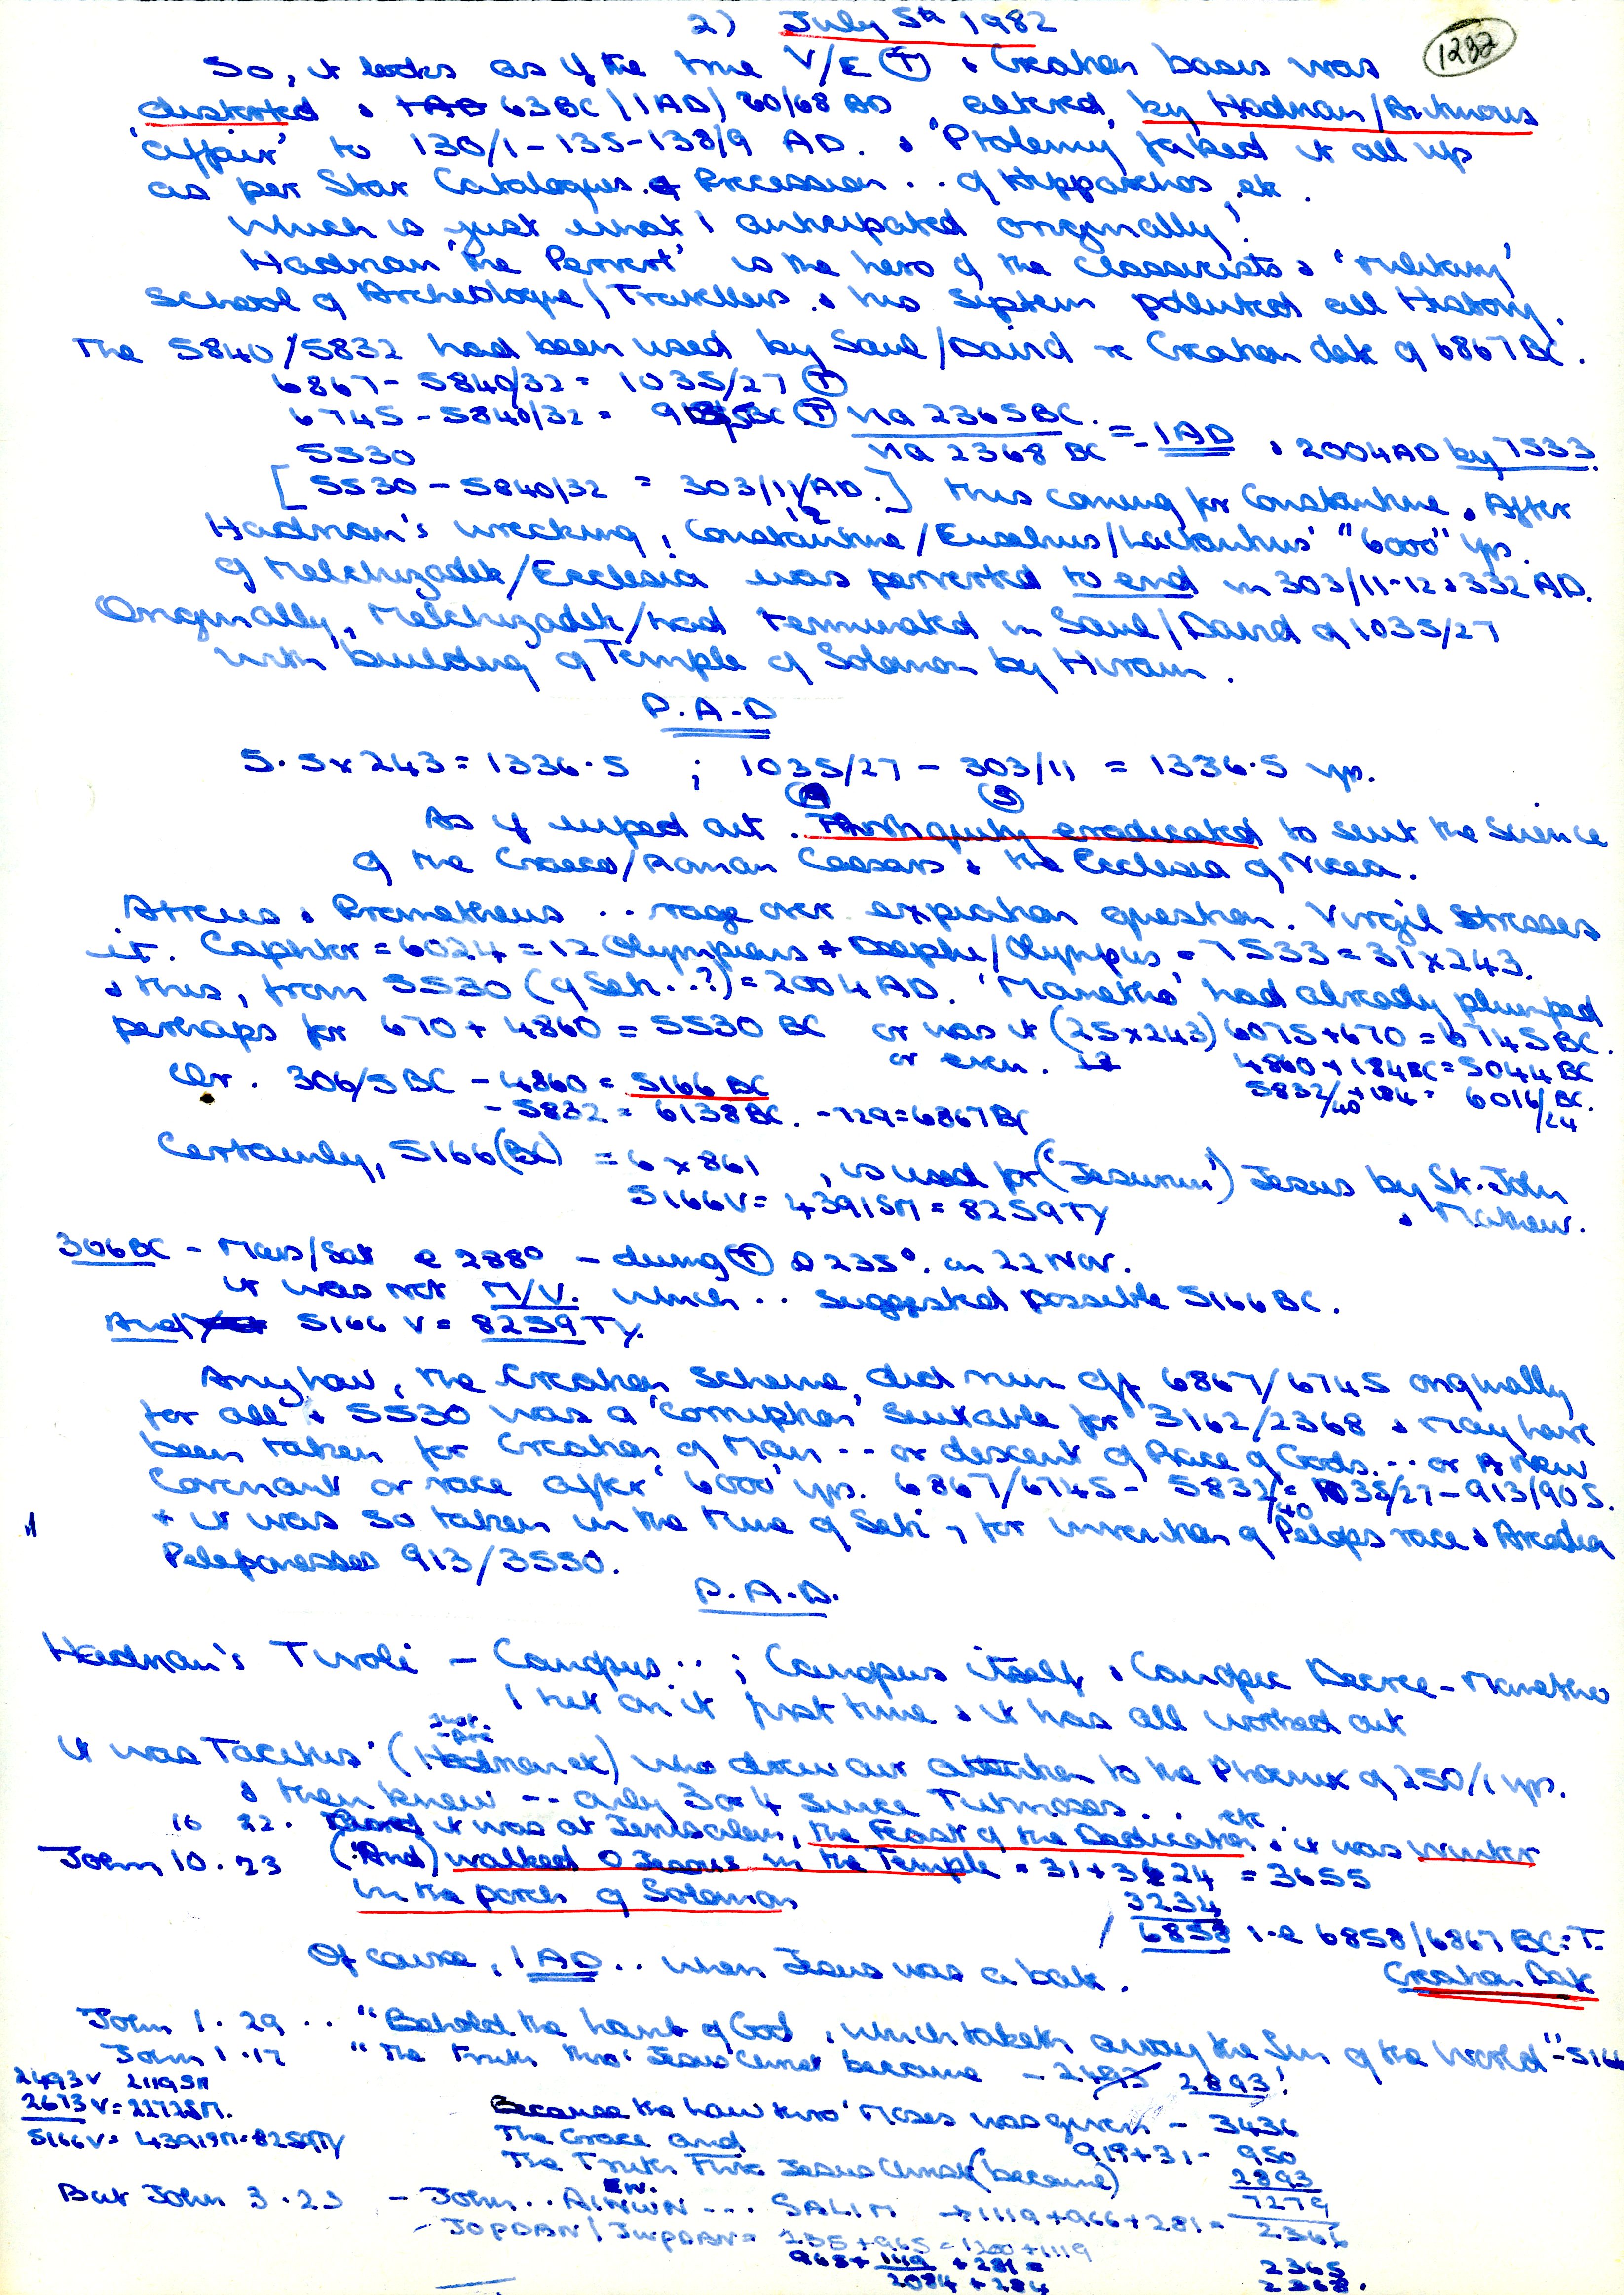 2) July 5th 1982
1292
So, it looks as if the true V/E (T) & Creation bases was
distorted & 1AD 63BC/(1AD) 60/68 AD altered, by Hadrian/Antinous
'affair' to 130/1-135-138/9 AD. & 'Ptolemy' faked it all up
as per Star Catalogues & Precession .. of Hipparchos, etc.
Which is just what I anticipated originally!
Hadrian 'the Pervert' is the hero of the Classicists & 'military'
School of Archeologue/Travellers & his system polluted all History.
The 5840/5832 had been used by Saul/David re Creation date of 6867 BC.
6867 - 5840/32 = 1035/27 (T)
6745 - 5840/32 = BC (T) via 2365 BC. = 1AD & 2004AD by 7533.
5530 via 2368 BC
[5530 - 5840/32 = 303/11/AD.] thus coming for Constantine. After
12
Hadrian's wrecking, Constantine/Eusebius/Lactantius' "6000" yrs.
of Melchizadek/Ecclesia was perverted to end in 303/11-12 & 332 AD.
Originally, Melchizadek/had terminated in Saul/David of 1035/27
with building of Temple of Solomon by Hiram.
P.A.D
5.5 x 243 = 1336.5 ; 1035/27 - 303/11 = 1336.5 yrs.
As if wiped out. Antiquity eradicated to suit the Science
of the Graeco/Roman Caesars & the Ecclesia of Nicea.
Atreus & Prometheus .. rage over expiation question. Virgil Stresses
it. Caphtor = 6024 = 12 Olympians + Delphi/Olympus = 7533 = 31x243.
& thus, from 5530 (of Seti..?) = 2004 AD. 'Manetho' had already plumped
perhaps for 670 + 4860 = 5530 BC or was it (25x243) 6075+670 = 6745 BC.
or even. 4860 + 184BC = 5044 BC
Or. 306/5 BC - 4860 = 5166 BC 5832/40 + 184 = 6016/24 BC.
- 5832 = 6138 BC. - 729 = 6867 BC
Certainly, 5166 (BC) = 6 x 861, is used for ('Jesurun') Jesus by St. John
5166V = 4391SM = 8259TY & Mathew.
306BC - Mars/Sat @ 288° - during (T) 235° on 22 Nov.
it was not M/V. which .. suggested possible 5166 BC.
And 5166 V = 8259 TY.
Anyhow, the Creation Scheme, did run off 6867/6745 originally
for all & 5530 was a 'corruption' suitable for 3162/2368 & may have
been taken for Creation of Man .. or descent of Race of Gods... or A New
Covenant or race after '6000' yrs. 6867/6745 - 5832/40 = 1035/27 - 913/905.
+ it was so taken in the time of Seti, for invention of Pelops race & Arcadia
Peleponesses 913/3550.
P.A.D.
Hadrian's Tivoli - Canopus ..; Canopus itself & Canopic Decree - Manetho
I hit on it first time & it has all worked out
It was Tacitus' (Hadrian etc) who drew our attention to the Phoenix of 250/1 yrs.
& then knew -- only 3 or 4 since Tutmoses.. etc
10 22. it was at Jerusalem, the Feast of the Dedication, & it was winter
John 10.23 (And) walked O Jesous in the Temple = 31+3624 = 3655
In the porch of Solomon 3234
6858 i.e 6858/6867 BC:T.
Of course, 1 AD.. when Jesus was a babe. Creation Date
John 1.29 .. "Behold the lamb of God, which taketh away the Sin of the World" - 5166
John 1.17 "The truth thro' Jesus Christ became - 2493 2893!
2493V 2119SM
2673V = 2272SM. Because the law thro' Moses was given - 3436
5166V = 4391SM = 8259TY The Grace and 919+31 - 950
The Truth Thro Jesus Christ (became) 2893
7279
But John 3.23 - John.. AINWN ... SALIM → 1119+966+281 = 2366
- JORDAN/ = 235+965 = 1200+1119
965+1119+281 = 2365
2084+284 2368.